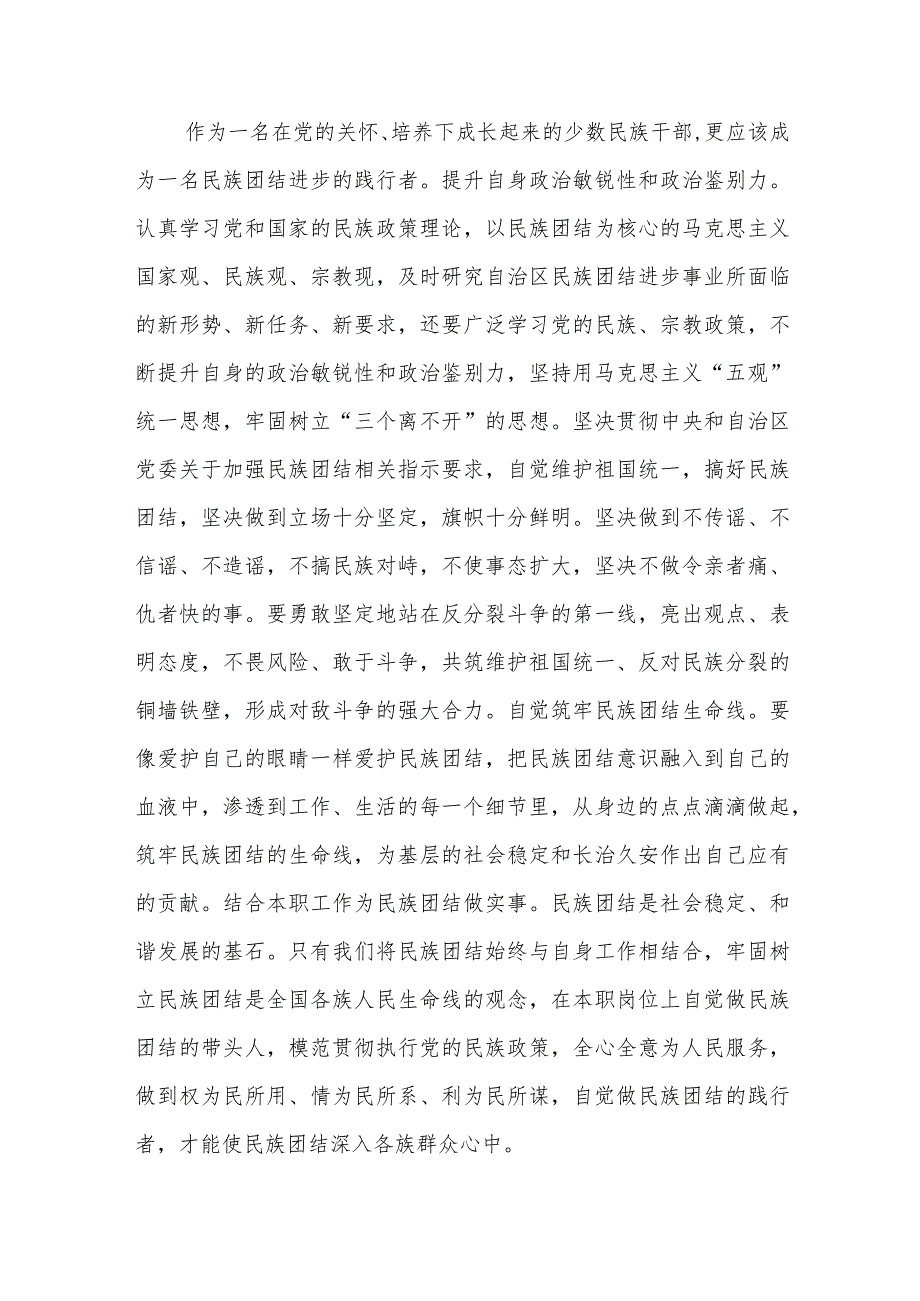 作为一名在党的关怀、培养下成长起来的少数民族干部,更应该成
为一名民族团结进步的践行者。提升自身政治敏锐性和政治鉴别力。
认真学习党和国家的民族政策理论，以民族团结为核心的马克思主义
国家观、民族观、宗教现，及时研究自治区民族团结进步事业所面临
的新形势、新任务、新要求，还要广泛学习党的民族、宗教政策，不
断提升自身的政治敏锐性和政治鉴别力，坚持用马克思主义“五观”
统一思想，牢固树立“三个离不开”的思想。坚决贯彻中央和自治区
党委关于加强民族团结相关指示要求，自觉维护祖国统一，搞好民族
团结，坚决做到立场十分坚定，旗帜十分鲜明。坚决做到不传谣、不
信谣、不造谣，不搞民族对峙，不使事态扩大，坚决不做令亲者痛、
仇者快的事。要勇敢坚定地站在反分裂斗争的第一线，亮出观点、表
明态度，不畏风险、敢于斗争，共筑维护祖国统一、反对民族分裂的
铜墙铁壁，形成对敌斗争的强大合力。自觉筑牢民族团结生命线。要
像爱护自己的眼睛一样爱护民族团结，把民族团结意识融入到自己的
血液中，渗透到工作、生活的每一个细节里，从身边的点点滴滴做起，
筑牢民族团结的生命线，为基层的社会稳定和长治久安作出自己应有
的贡献。结合本职工作为民族团结做实事。民族团结是社会稳定、和
谐发展的基石。只有我们将民族团结始终与自身工作相结合，牢固树
立民族团结是全国各族人民生命线的观念，在本职岗位上自觉做民族
团结的带头人，模范贯彻执行党的民族政策，全心全意为人民服务，
做到权为民所用、情为民所系、利为民所谋，自觉做民族团结的践行
者，才能使民族团结深入各族群众心中。